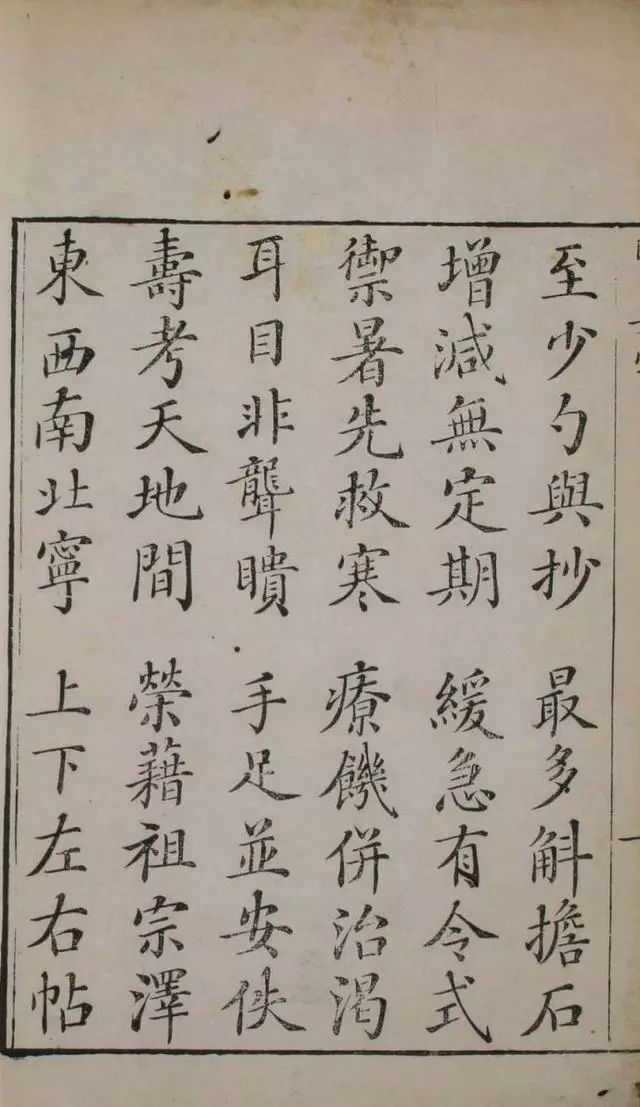 至少勺與抄 最多斛擔石
增減無定期 緩急有令式
禦暑先救寒 療饑併治渴
耳目非聾瞶 手足並安佚
壽考天地間 榮藉祖宗澤
東西南北寧 上下左右帖